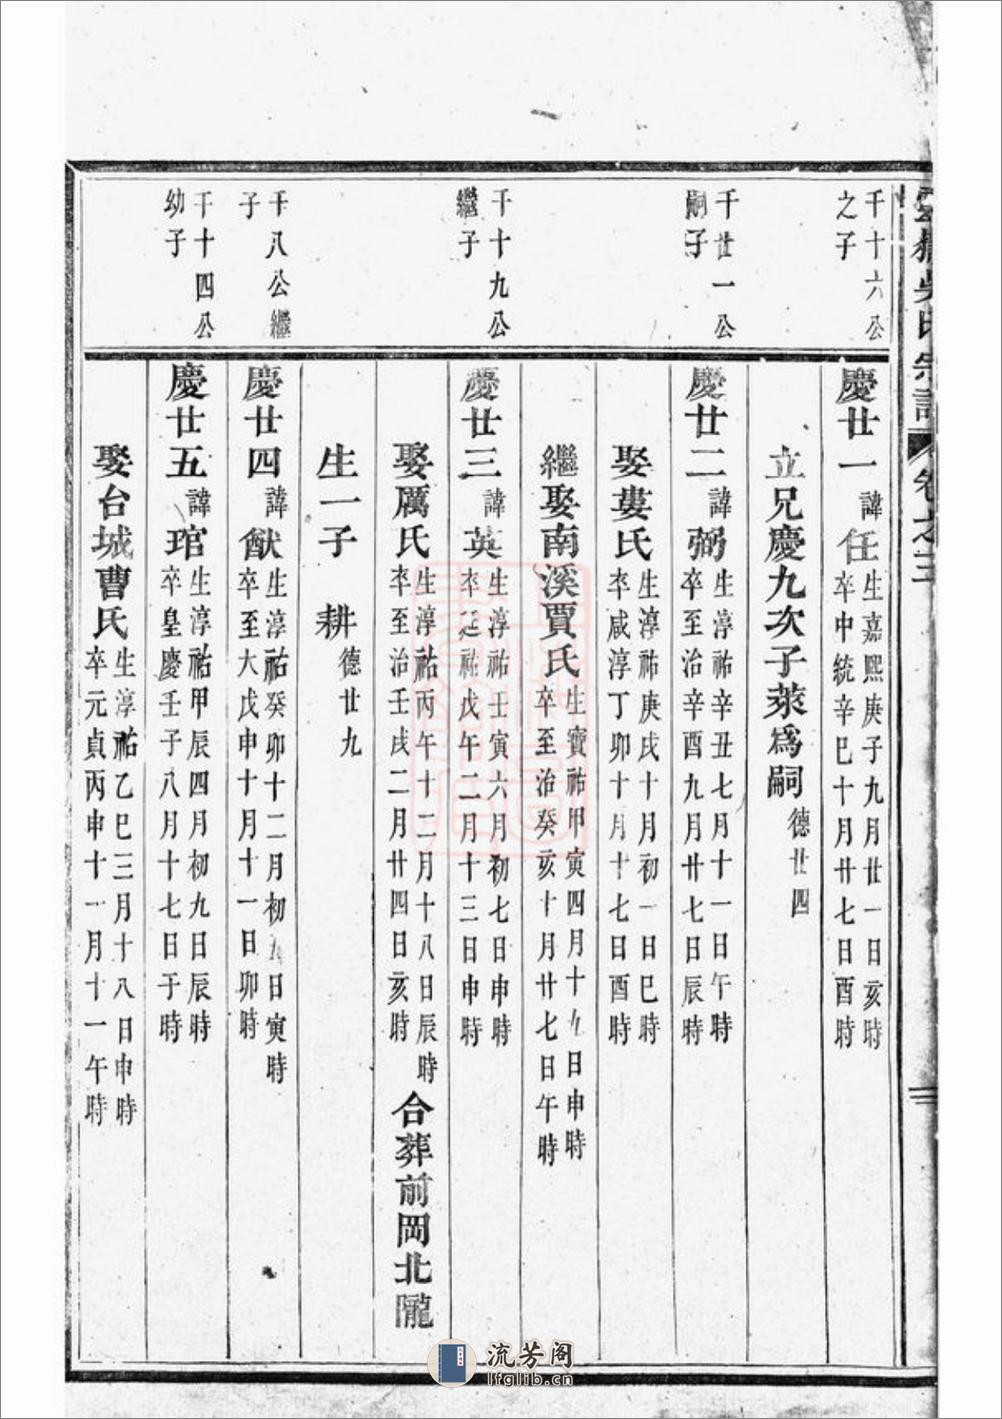 吳氏宗譜 卷之三
千十六公
之子
慶廿一 諱任 生嘉熙庚子九月廿一日亥時
卒中統辛巳十月廿七日酉時
立兄慶九次子萊為嗣 德廿四
千廿一公
嗣子
慶廿二 諱弼 生淳祐辛丑七月十一日午時
卒至治辛酉九月廿七日辰時
娶婁氏 生淳祐庚戌十月初一日巳時
卒咸淳丁卯十月十七日酉時
繼娶南溪賈氏 生寶祐甲寅四月十九日申時
卒至治癸亥十月廿七日午時
千十九公
繼子
慶廿三 諱英 生淳祐壬寅六月初七日申時
卒延祐戊午二月十三日申時
娶厲氏 生淳祐丙午十二月十八日辰時
卒至治壬戌二月廿四日亥時
合葬前岡北隴
生一子 耕 德廿九
千八公繼
子
慶廿四 諱猷 生淳祐癸卯十二月初九日寅時
卒至大戊申十月十一日卯時
千十四公
幼子
慶廿五 諱琯 生淳祐甲辰四月初九日辰時
卒皇慶壬子八月十七日于時
娶台城曹氏 生淳祐乙巳三月十八日申時
卒元貞丙申十一月十一午時
流芳阁
lfglib.cn